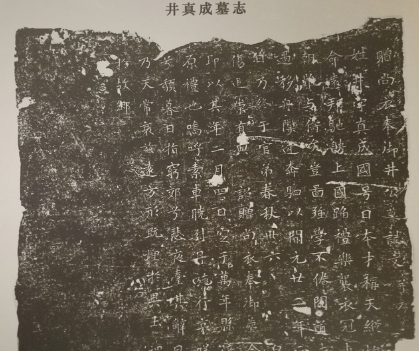 井真成墓志
贈尚衣奉御井公墓誌文
姓井字真成國号日本才稱天縱
命遠邦馳騁上國蹈禮樂襲衣冠
朝難与儔矣豈圖強學不倦問道
遇移舟隙逢奔駟以開元廿二年
終于官弟春秋卅六
傷追崇有典詔贈尚衣奉御葬令
即以其年二月四日窆于萬年縣
原禮也嗚呼素車曉引丹旐行哀
兮頹暮日指窮郊兮悲夜臺其辭曰
乃天常哀茲遠方形既埋于異土
歸于故鄉